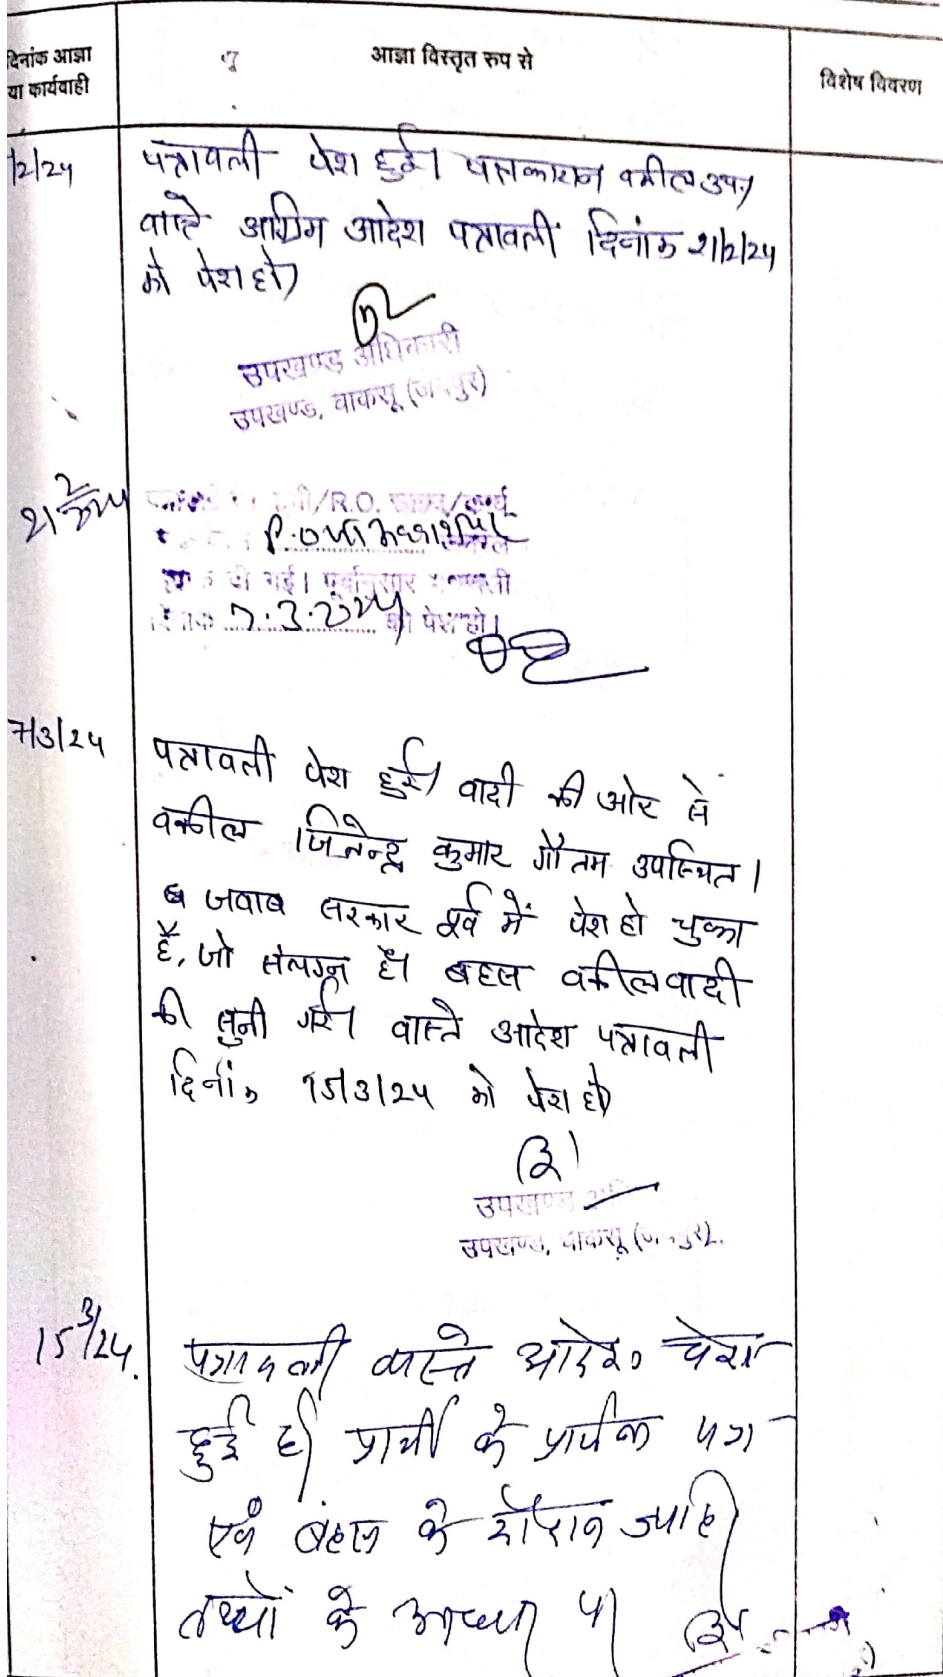 दिनांक आज्ञा
या कार्यवाही
आज्ञा विस्तृत रुप से
विशेष विवरण
/2/24
पत्रावली पेश हुई। पक्षकारान वकील उप.
वास्ते अग्रिम आदेश पत्रावली दिनांक 21/2/24
को पेश हो।
उपखण्ड अधिकारी
उपखण्ड, चाकसू (जयपुर)
/R.O.
P.O.
दी गई।
7.3.2024 को पेश हो।
7/3/24
पत्रावली पेश हुई। वादी की ओर से
वकील जितेन्द्र कुमार गौतम उपस्थित।
जवाब सरकार पूर्व में पेश हो चुका
है, जो संलग्न है। बहस वकील वादी
की सुनी गई। वास्ते आदेश पत्रावली
दिनांक 15/3/24 को पेश हो।
उपखण्ड
उपखण्ड, चाकसू (जयपुर).
15/3/24.
पत्रावली वास्ते आदेश पेश
हुई है। प्रार्थी के प्रार्थना पत्र
एवं बहस के दौरान जाहिर
तथ्यों के आधार पर